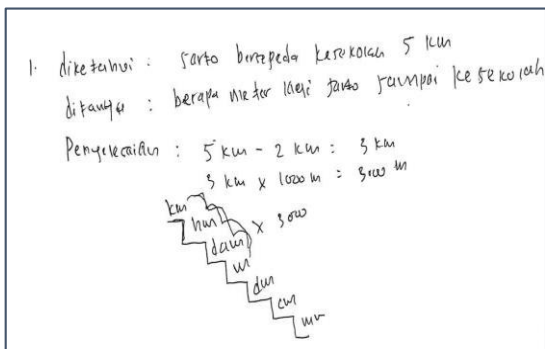 1. diketahui : Sarto bersepeda kesekolah 5 km
ditanya : berapa meter lagi sarto sampai kesekolah
Penyelecaian : 5 km - 2 km : 3 km
3 km x 1000 m = 3000 m
km
hm x 3000
dam
m
dm
cm
mm